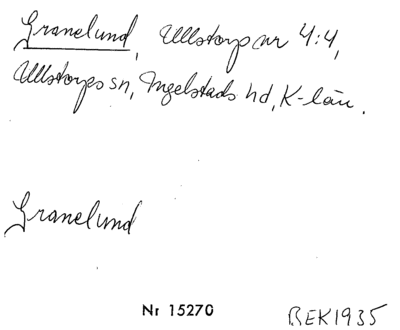 Granelund, Ullstorp nr 4:4,
Ullstorps sn, Ingelstads hd, K-län.
Granelund
Nr 15270
BEK1935